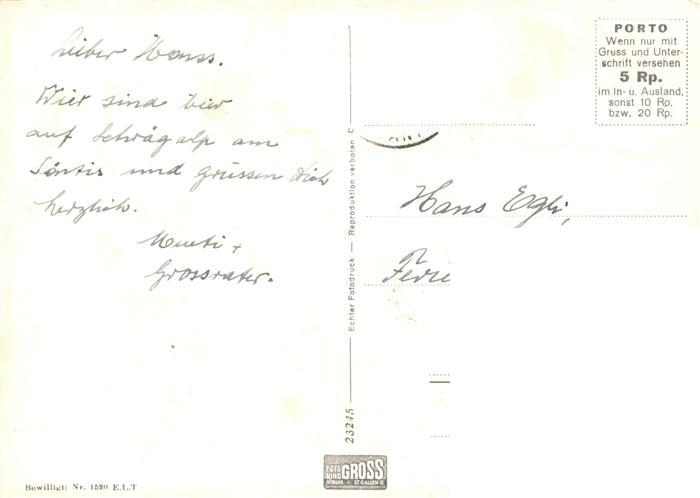 Lieber Hanss.
Wier sind hier
auf Schwägalp am
Säntis und grüssen dich
herzlich.
Mueti +
Grossvater.
Bewilligt: Nr. 1520 E.L.T
Echter Fotodruck — Reproduktion verboten C
23245
FOTO KINO GROSS
VERLAG ST GALLEN G
PORTO
Wenn nur mit
Gruss und Unter-
schrift versehen
5 Rp.
im In- u. Ausland,
sonst 10 Rp.
bzw. 20 Rp.
Hans Egli,
Ferie